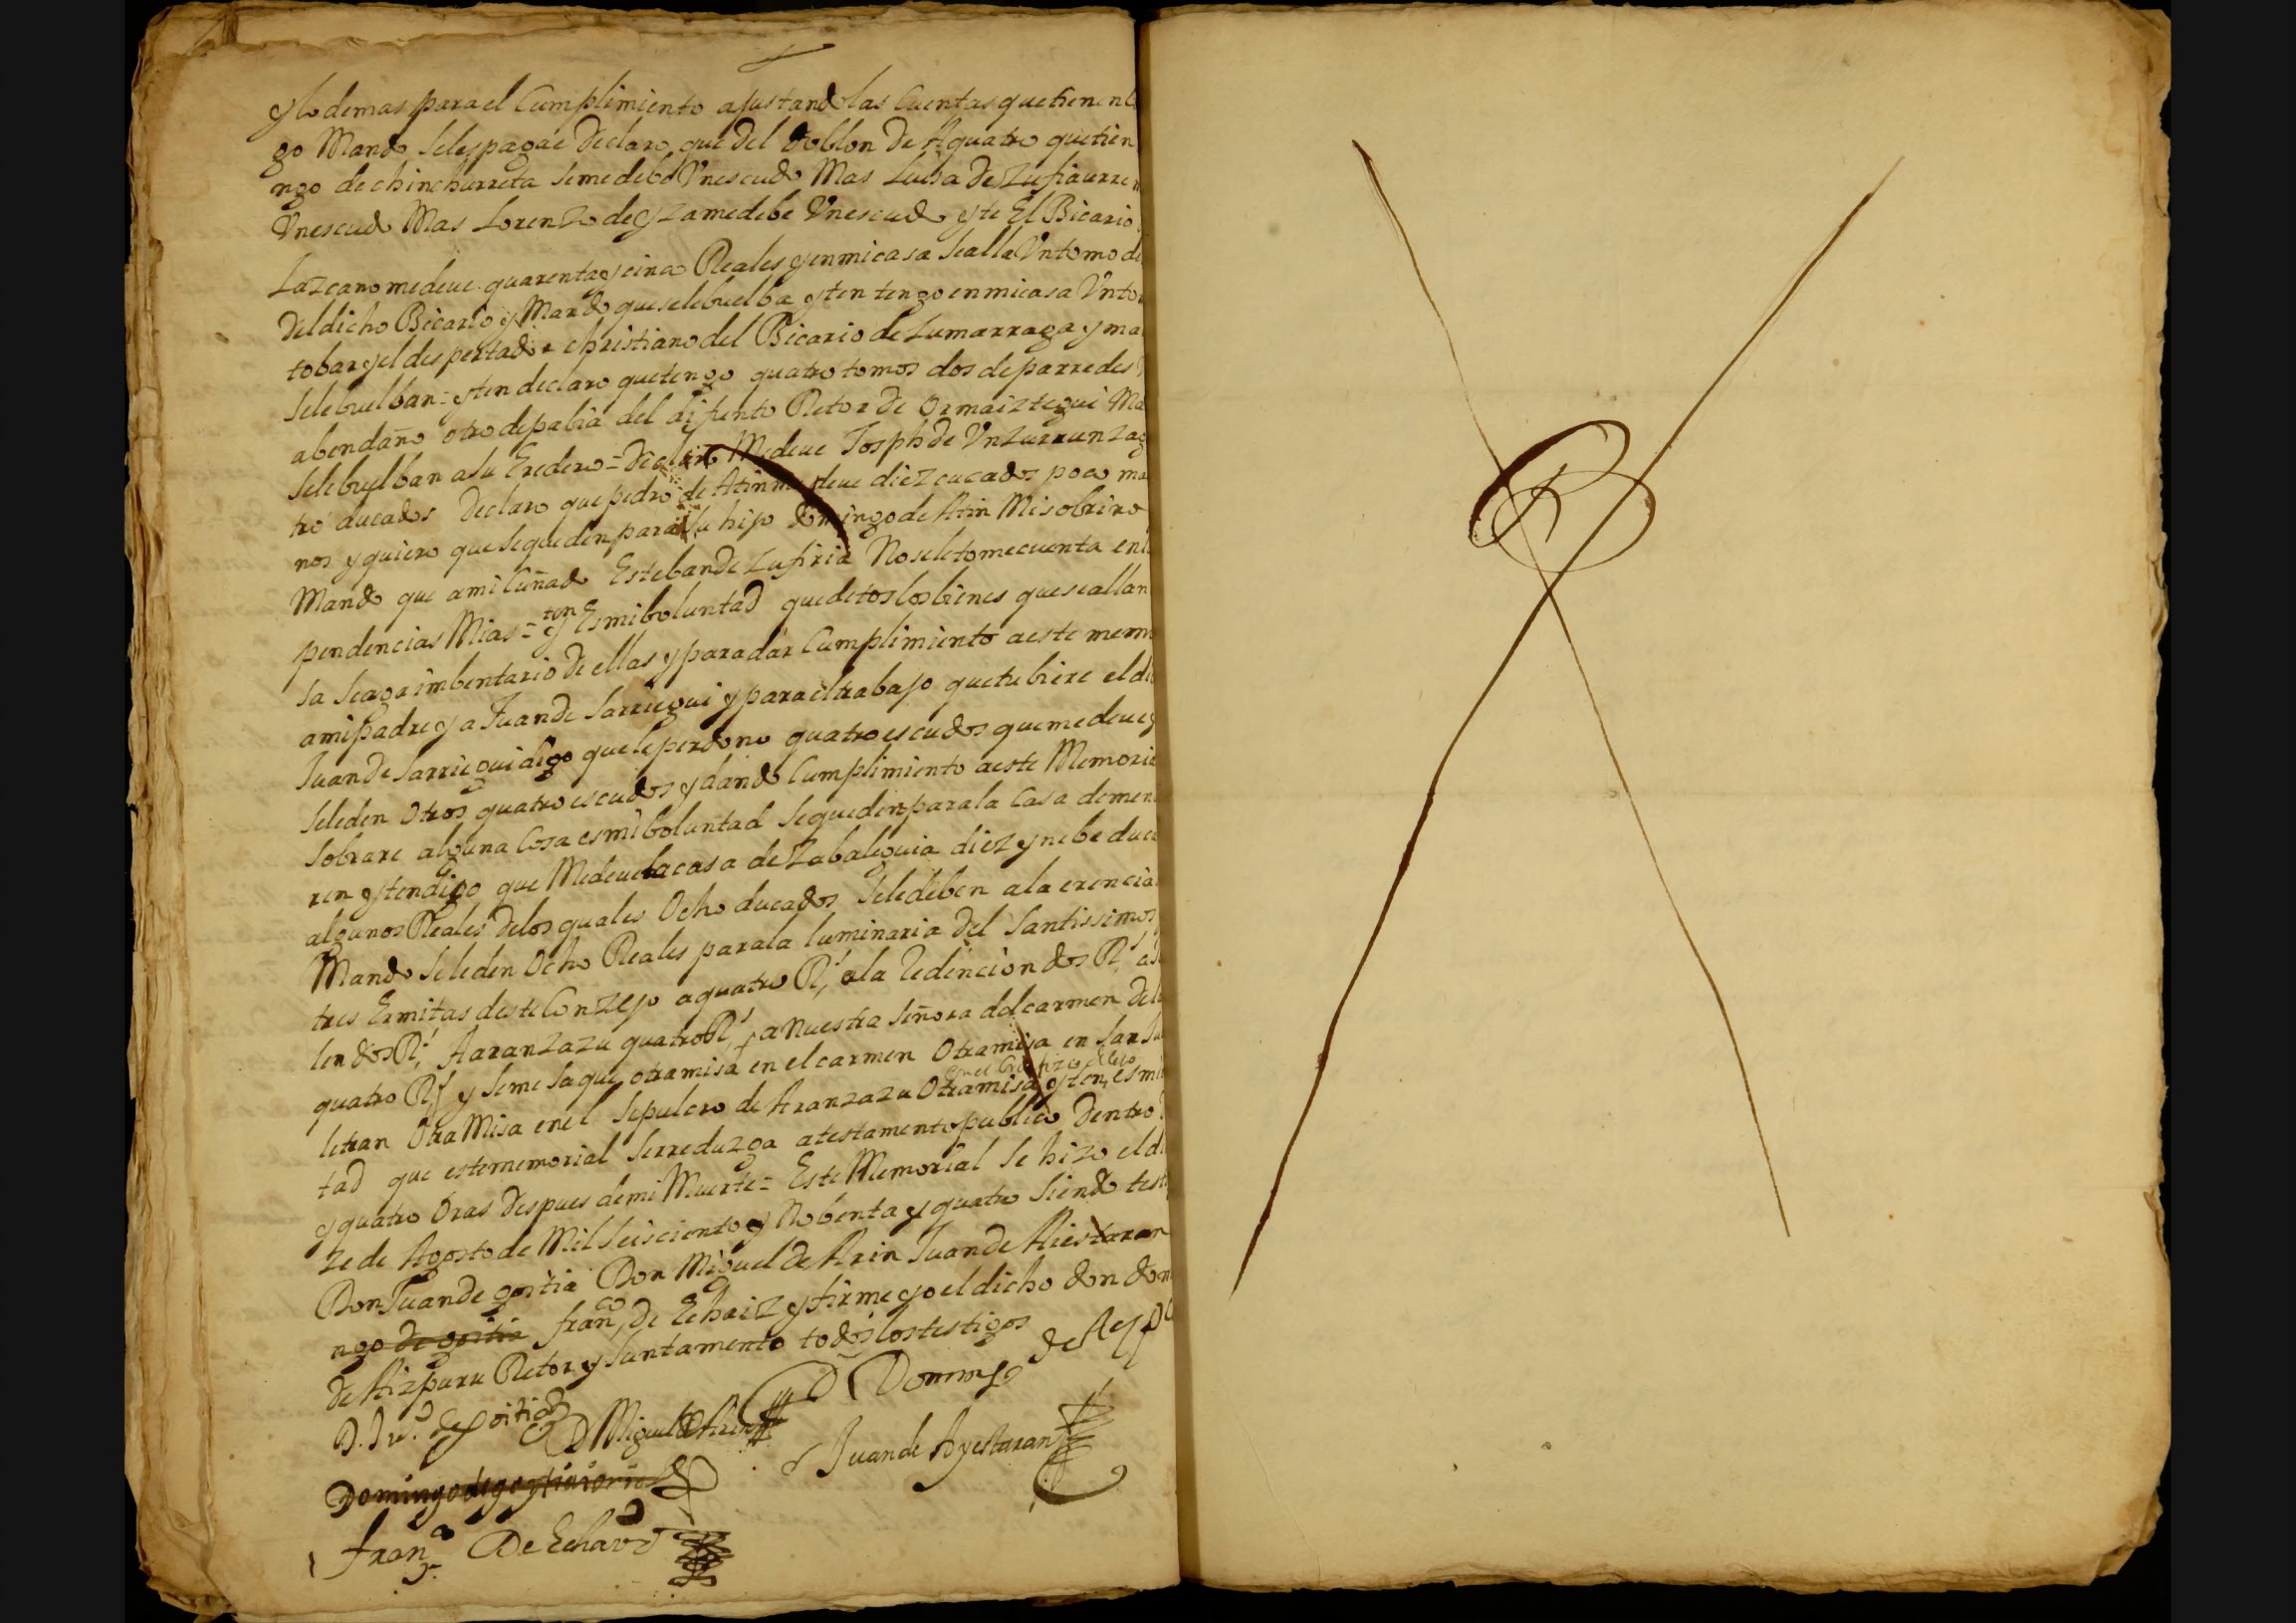 y lo demas para el Cumplimiento ajustando las Cuentas que tienen
go Mando Seles pague Declaro que Del doblon De A quatro que tien
ngo de chinchurreta Seme debe Vnescudo Mas Luisa De Zufiaurre
Vnescudo Mas Lorenzo de yza medebe Vnescudo yte El Bicario
Lazcano medeue quarenta y cinco Reales y en mi casa Sealla Vn tomo de
Del dicho Bicario y Mando que sele buelba yten tengo en mi casa Vn to
tobar y el despertador christiano del Bicario de Lumarraga y ma
Sele buelban = yten declaro que tengo quatro tomos dos de parredes
abendaño otro de pabia del difunto Retor De Ormaiztegui Ma
Sele buelban a Su Eredero = Declaro Medeue Josph de Vnzurrunzag
tro ducados Declaro que pedro de Atin me deue diez ducados poco ma
nos y quiero que Se queden para Su hijo domingo de Atin Mi sobrino
Mando que a mi Cuñado Esteban de Zufiria No sele tome cuenta en
pendencias Mias = yten Es mi boluntad que de tos los bienes que se allan
sa Seaga imbentario De ellas y para dar Cumplimiento a este mem
a mi padre y a Juan de Sarriegui y para el trabajo que tubiere el di
Juan de Sarriegui digo que le perdono quatro escudos que me deue y
Seleden Otros quatro escudos y dando Cumplimiento a este Memoria
Sobrare alguna Cosa es mi boluntad Se queden para la Casa de men
ren yten digo que Medeue la casa de Zabaleguia diez y nebe duca
algunos Reales De los quales Ocho ducados Sele deben a la erencia
Mando Seleden Ocho Reales para la luminaria Del Santissimo
tres Ermitas deste Conzejo a quatro Rs, a la Redencion dos Rs, a
len dos Rs, A aranzazu quatro Rs, a Nuestra Señora del carmen De
quatro Rs, y Seme Saque otra misa en el carmen Otra misa en San Ju
en el Crucifizio de lezo
letran Otra Misa en el Sepulcro de Aranzazu Otra misa, yten, es mi
tad que este memorial Serreduzga a testamento publico Dentro
y quatro Oras Despues de mi Muerte = Este Memorial Se hizo el di
ze de Agosto de Mil Seiscientos y Nobenta y quatro Siendo test
Don Juan de gostia Don Miguel De Arin Juan de Aiestaran
ngo de gostia franco, De Echaiz y firme yo el dicho don dom
De Aizpuru Retor y Juntamento todos los testigos
D Domingo de
D. Ju. de Goitia D Miguel De Arin
Juan de Ayestaran
Domingo de gostia
fran. De Echavz